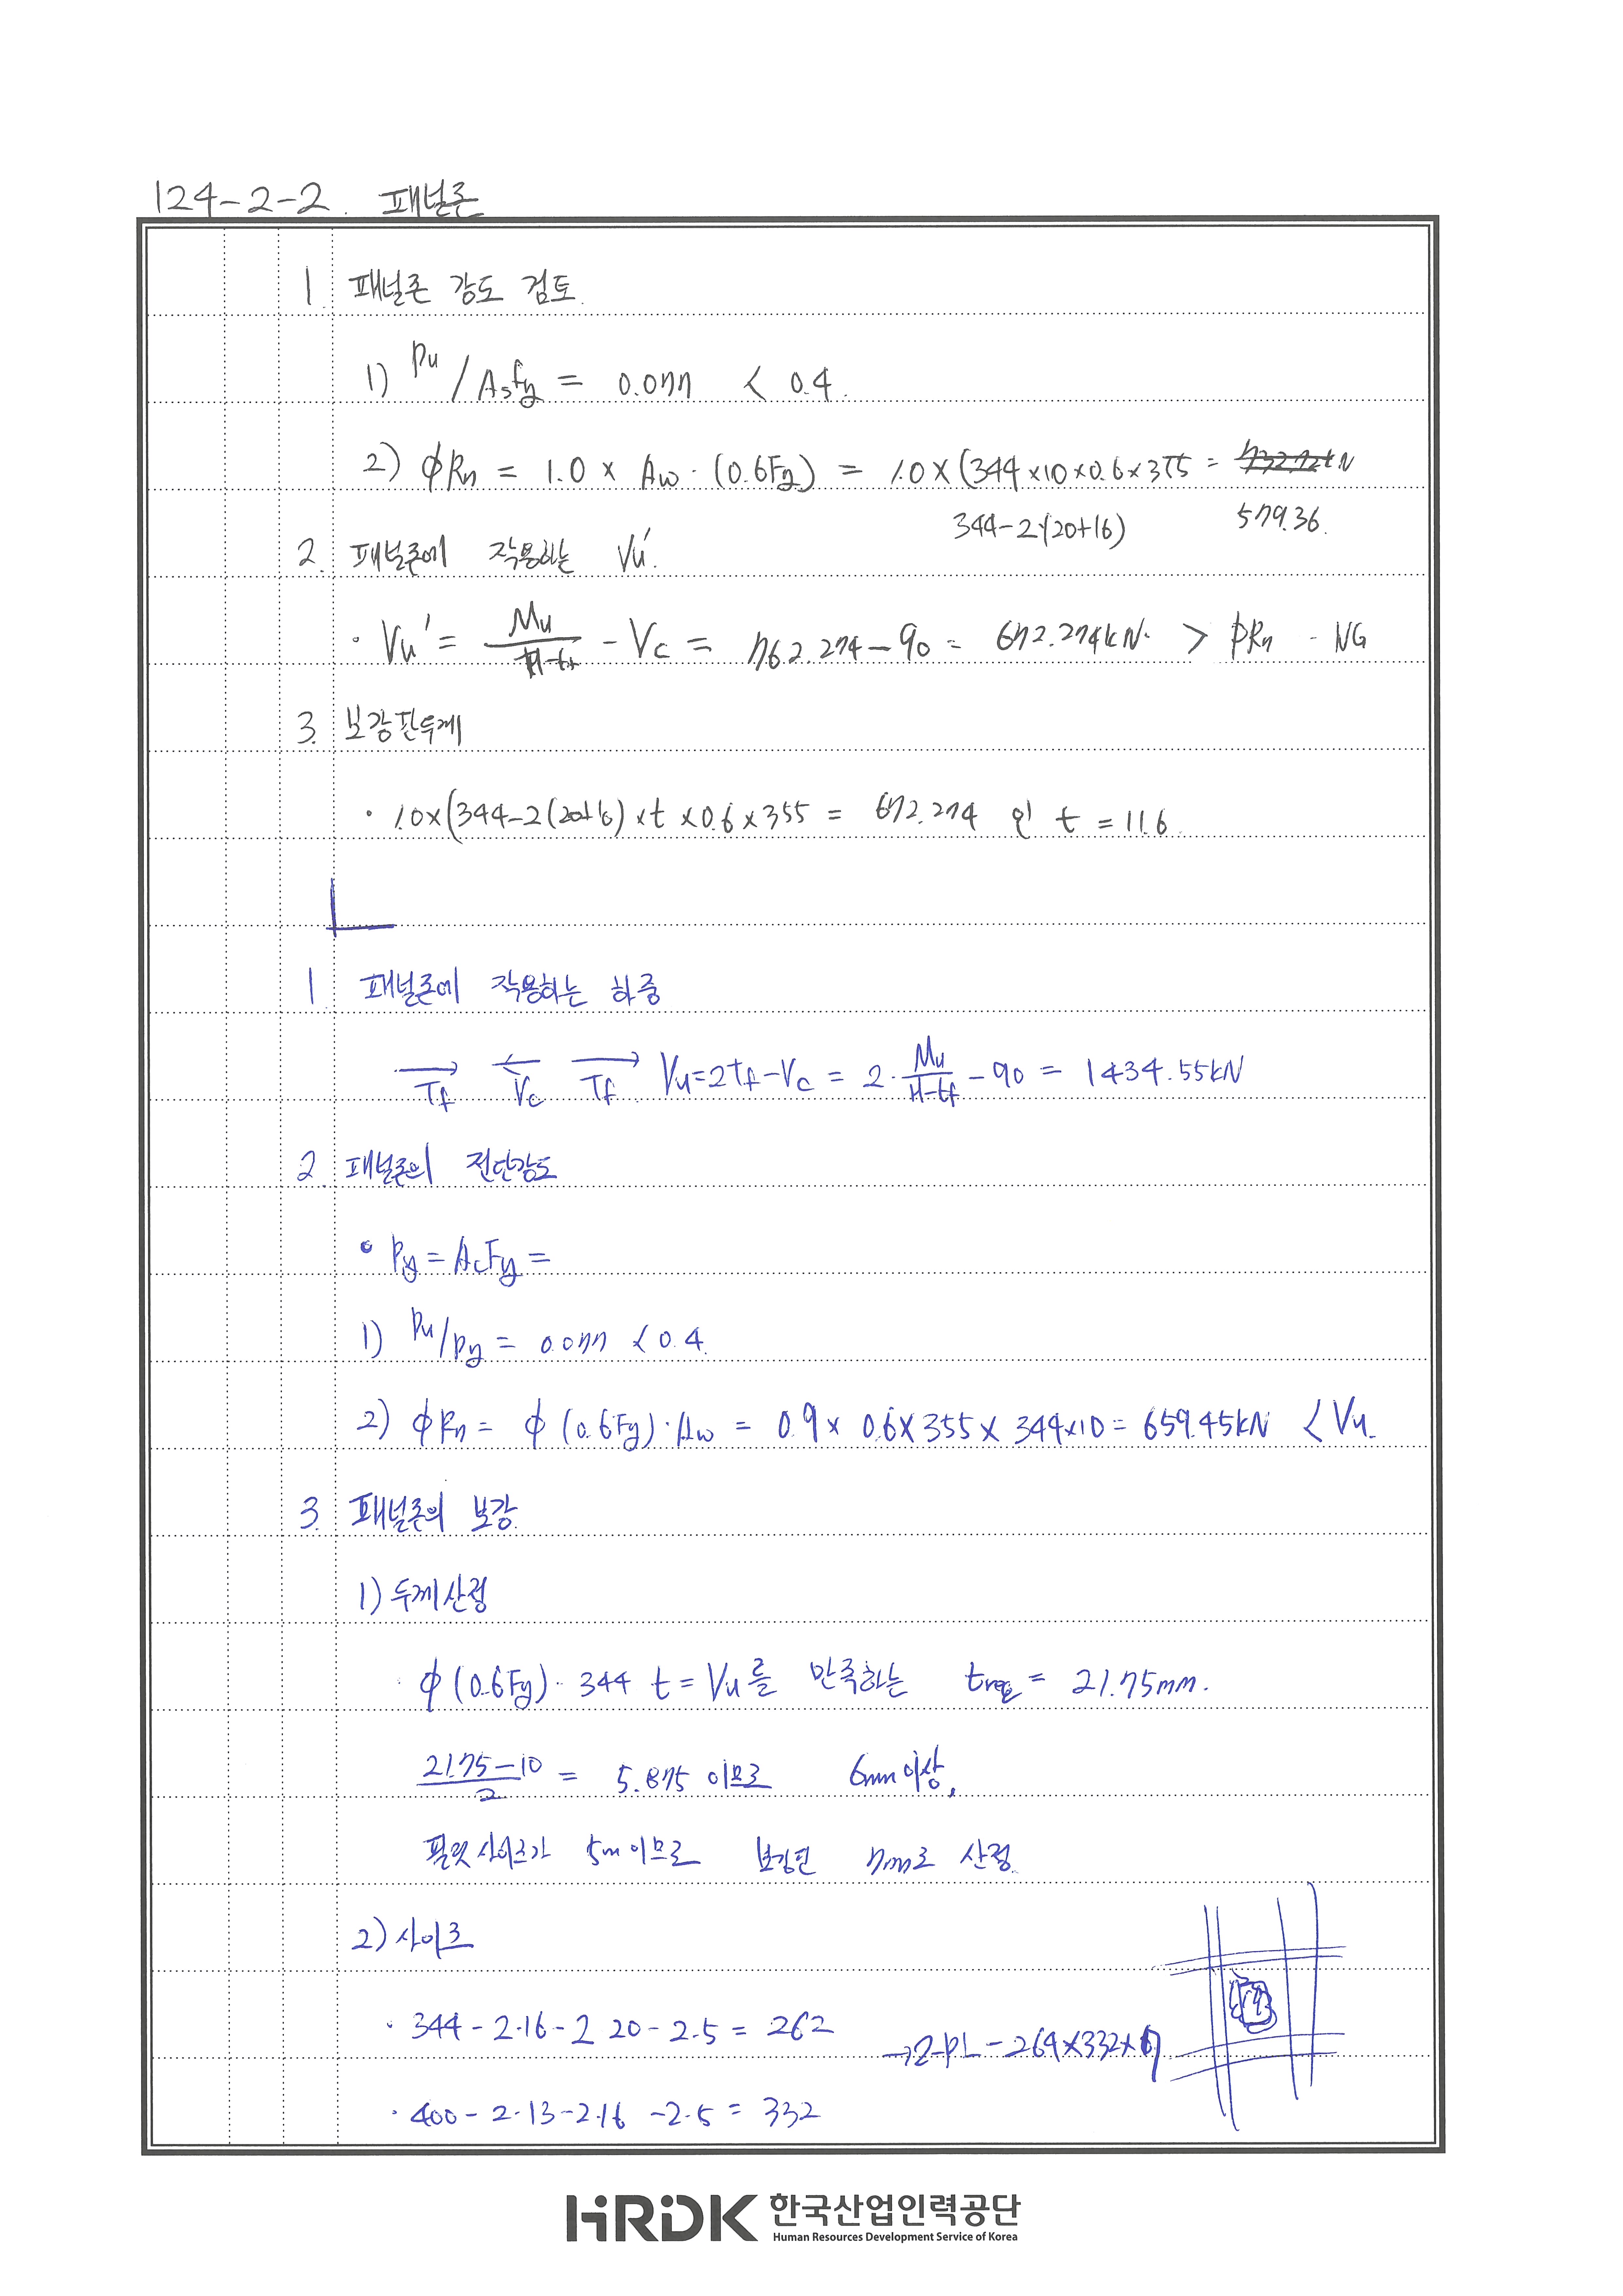 124-2-2. 패널존
1. 패널존 강도 검토.
1) Pu/AsFy = 0.077 < 0.4.
2) ϕRn = 1.0 × Aw · (0.6Fy) = 1.0 × (344 × 10 × 0.6 × 355 = kN
344-2·(20+16) 579.36.
2. 패널존에 작용하는 Vu'.
· Vu' = Mu/H-tf - Vc = 762.274 - 90 = 672.274kN. > ϕRn - NG
3. 보강판두께
· 1.0×(344-2(20+16)×t×0.6×355 = 672.274 인 t = 11.6.
1 패널존에 작용하는 하중
Tf Vc Tf Vu=2Tf-Vc = 2·Mu/H-tf - 90 = 1434.55kN
2. 패널존의 전단강도
• Py = AcFy =
1) Pu/Py = 0.077 < 0.4.
2) ϕRn = ϕ(0.6Fy)·Aw = 0.9 × 0.6 × 355 × 344×10 = 659.45kN < Vu.
3. 패널존의 보강
1) 두께산정
· ϕ(0.6Fy)· 344 t = Vu를 만족하는 treq = 21.75mm.
21.75-10/2 = 5.875 이므로 6mm이상,
필릿사이즈가 5m이므로 보강판 7mm로 산정.
2) 사이즈
· 344 - 2·16 - 2 20 - 2·5 = 262 → 2-PL-264×332×7
· 400 - 2·13 - 2·16 - 2·5 = 332
HRDK 한국산업인력공단
Human Resources Development Service of Korea